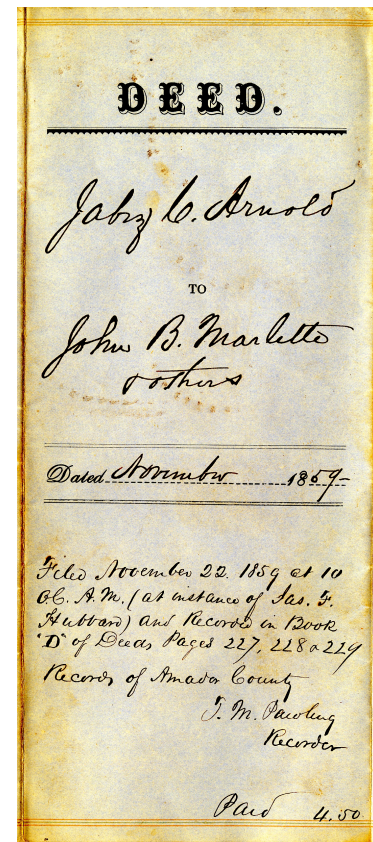 DEED.
Jabez C. Arnold
TO
John B. Marlette
& others
Dated November 1859-
Filed November 22. 1859 at 10
O.C. A.M. (at instance of Jas. F.
Hubbard) and Recorded in Book
"D" of Deeds Pages 227, 228 & 229
Records of Amador County
T. M. Pawling
Recorder
Paid 4.50